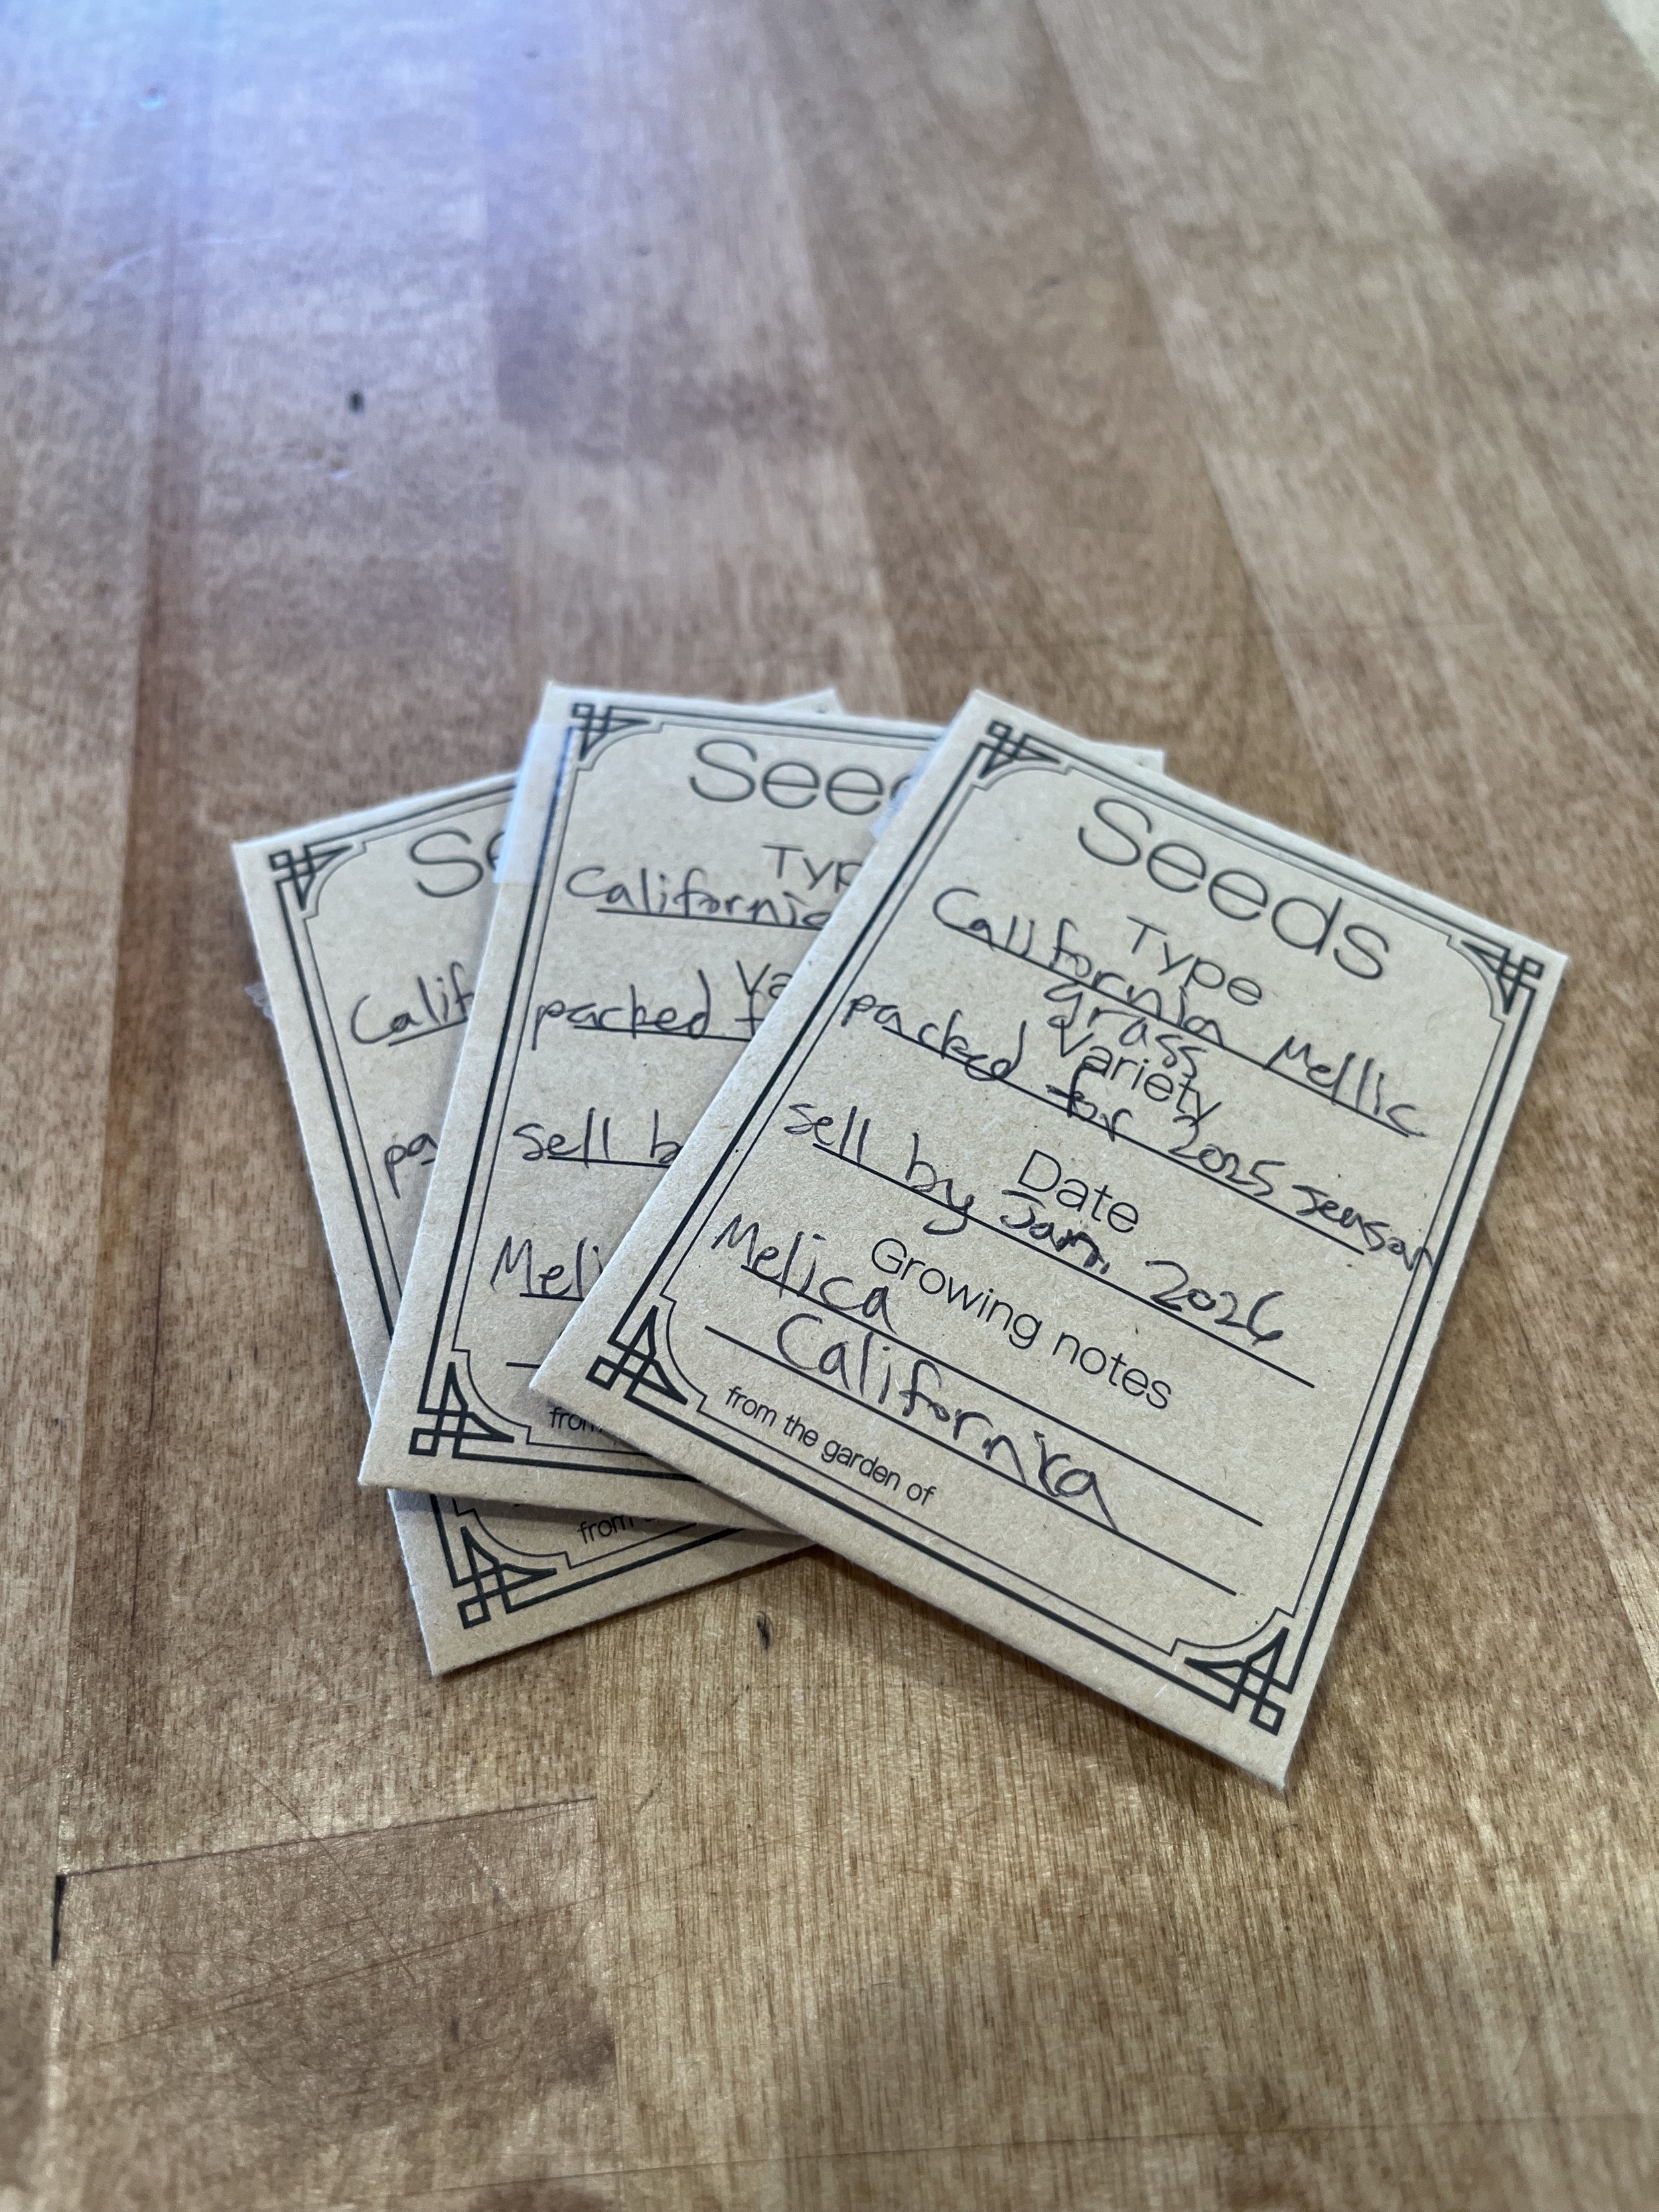 Seeds
Type
California Mellic
grass
Variety
packed for 2025 season
Date
sell by Jan. 2026
Growing notes
Melica
Californica
from the garden of
See
Typ
California
Va
packed f
sell b
Meli
from
Se
Calif
pa
from